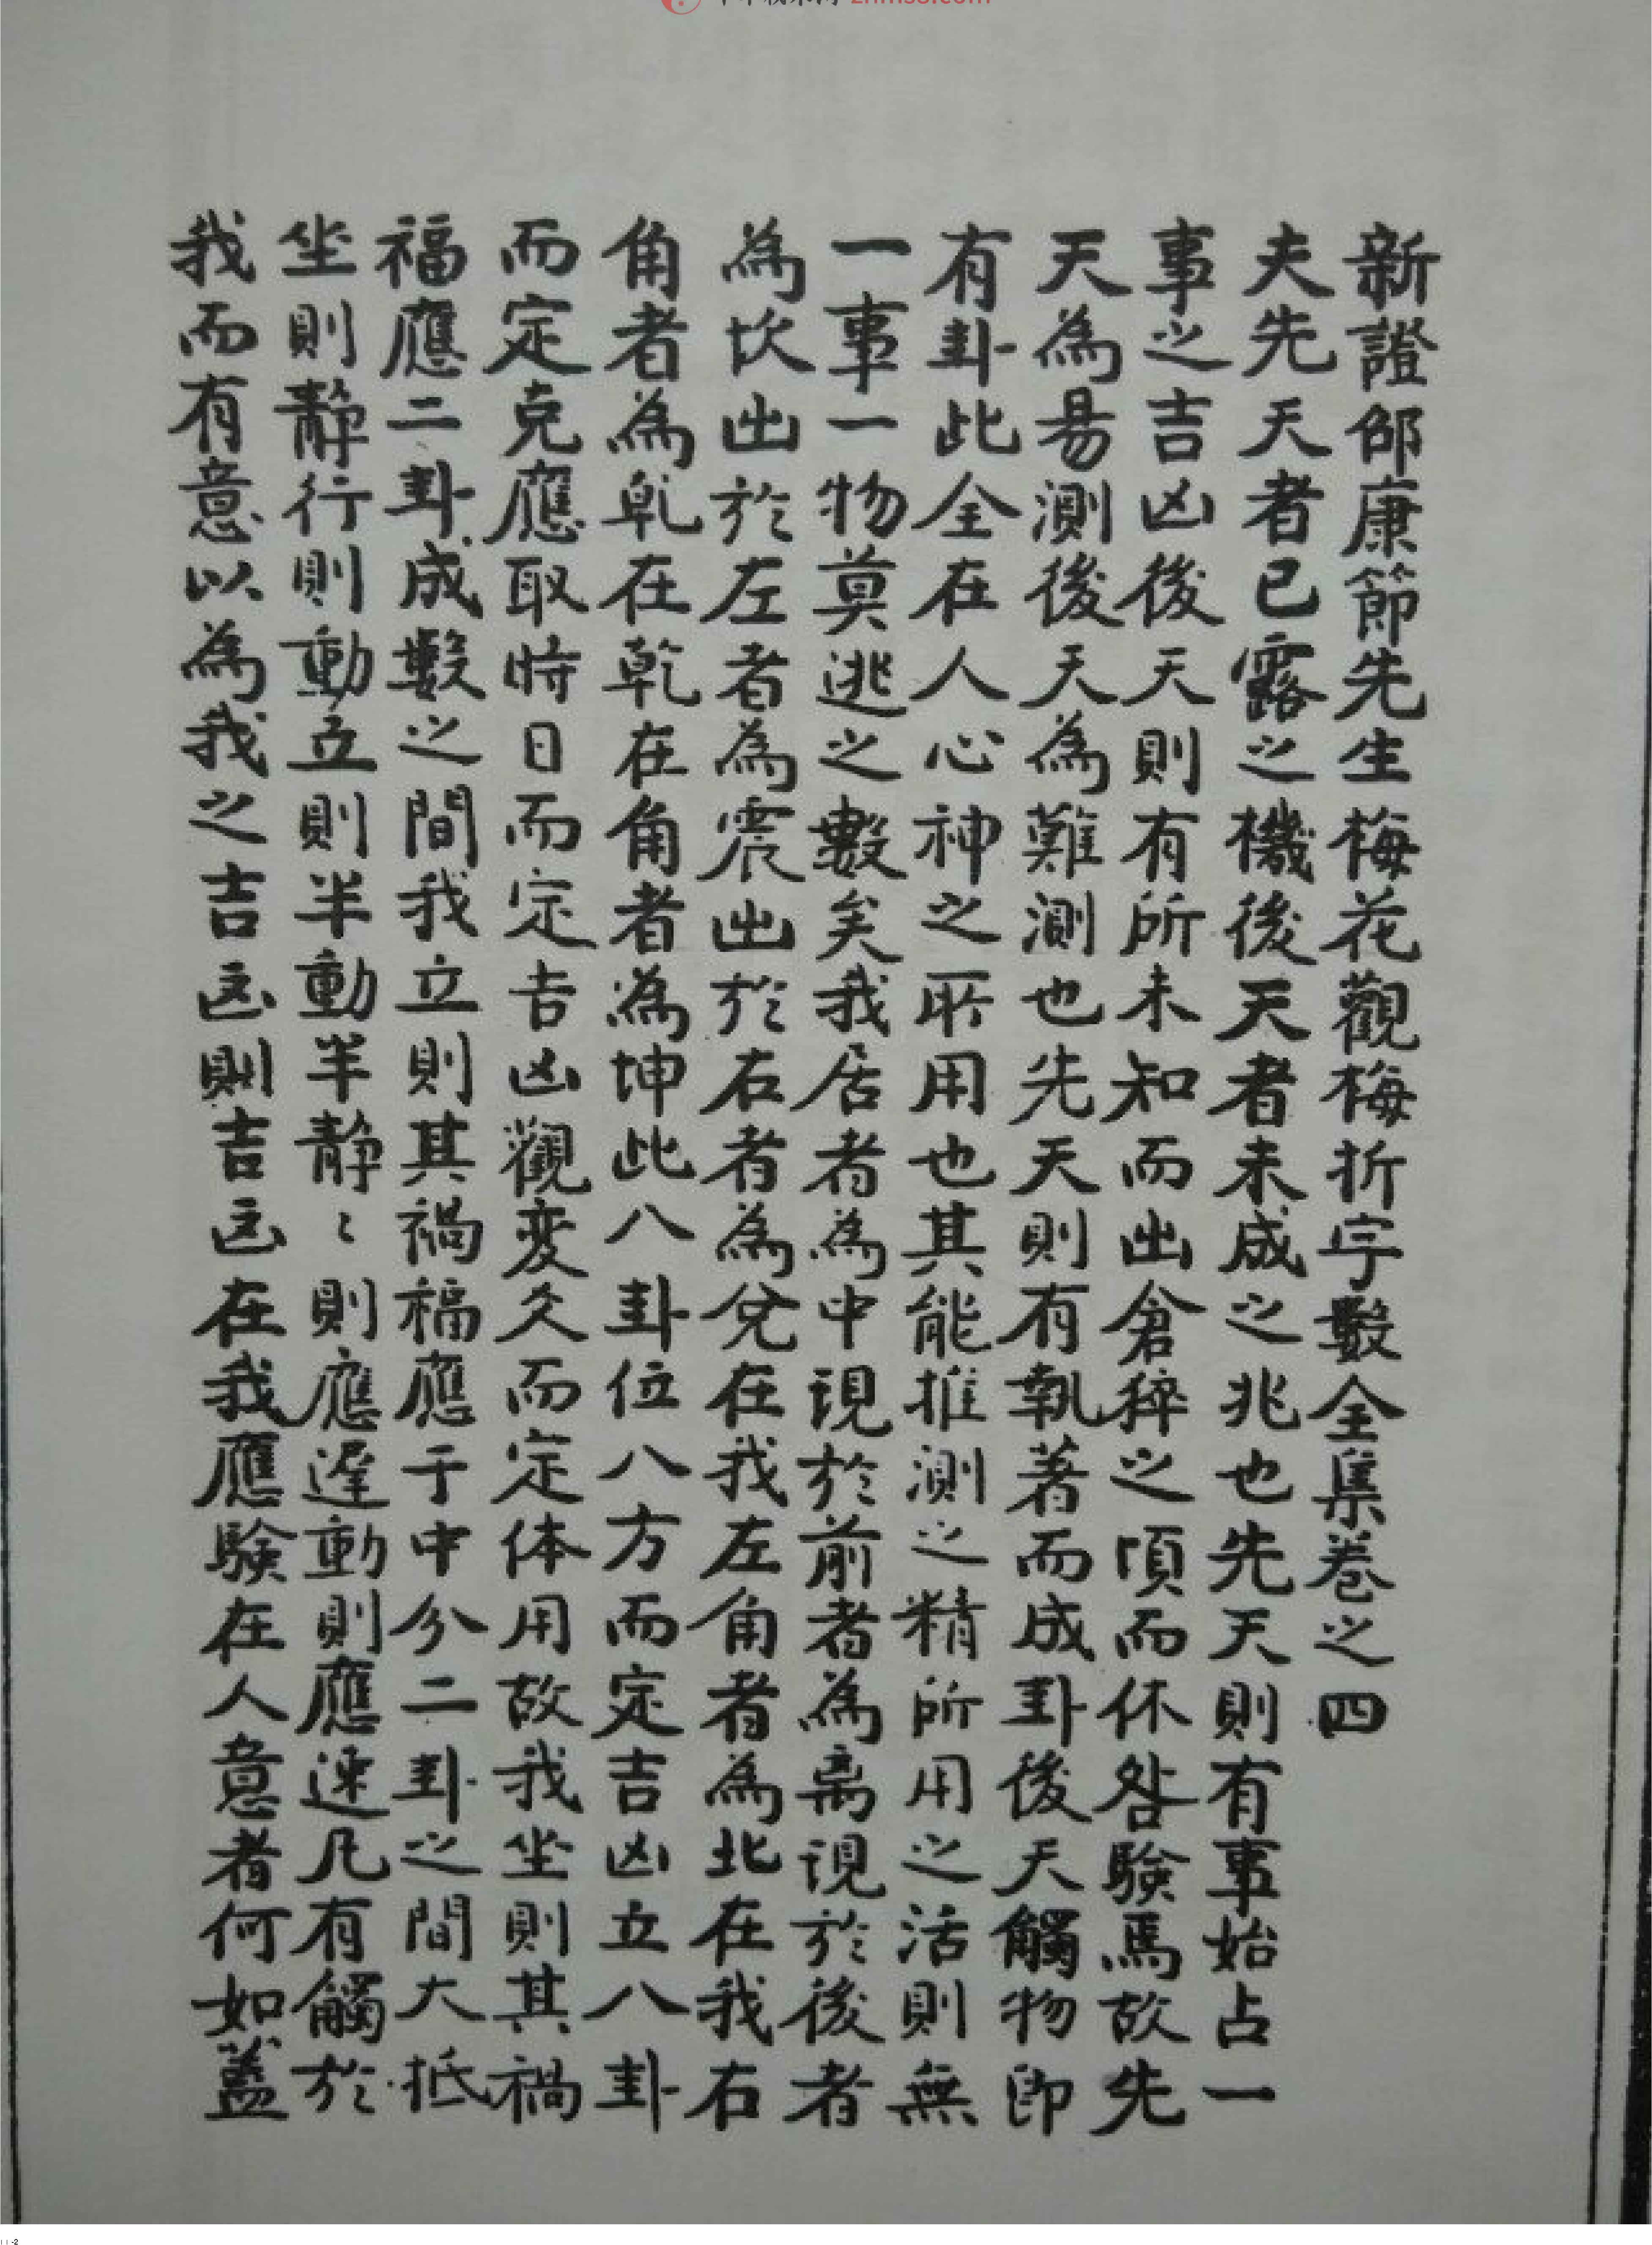 新證邵康節先生梅花觀梅折字數全集卷之四
夫先天者已露之機後天者未成之兆也先天則有事始占一
事之吉凶後天則有所未知而出倉猝之頃而休咎驗焉故先
天為易測後天為難測也先天則有執著而成卦後天觸物即
有卦此全在人心神之所用也其能推測之精所用之活則無
一事一物莫逃之數矣我居者為中現於前者為离現於後者
為坎出於左者為震出於右者為兌在我左角者為北在我右
角者為乹在乾在角者為坤此八卦位八方而定吉凶立八卦
而定克應取時日而定吉凶觀变爻而定体用故我坐則其禍
福應二卦成數之間我立則其禍福應于中分二卦之間大抵
坐則靜行則動立則半動半靜〻則應遲動則應速凡有觸於
我而有意以為我之吉凶則吉凶在我應驗在人意者何如蓋
zhms8.com